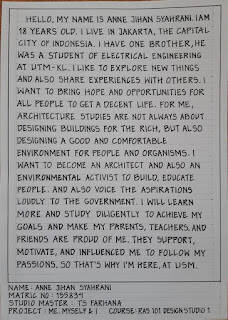 HELLO, MY NAME IS ANNE JIHAN SYAHRANI. I AM
18 YEARS OLD. I LIVE IN JAKARTA, THE CAPITAL
CITY OF INDONESIA. I HAVE ONE BROTHER, HE
WAS A STUDENT OF ELECTRICAL ENGINEERING
AT UTM-KL. I LIKE TO EXPLORE NEW THINGS
AND ALSO SHARE EXPERIENCES WITH OTHERS. I
WANT TO BRING HOPE AND OPPORTUNITIES FOR
ALL PEOPLE TO GET A DECENT LIFE. FOR ME,
ARCHITECTURE STUDIES ARE NOT ALWAYS ABOUT
DESIGNING BUILDINGS FOR THE RICH, BUT ALSO
DESIGNING A GOOD AND COMFORTABLE
ENVIRONMENT FOR PEOPLE AND ORGANISMS. I
WANT TO BECOME AN ARCHITECT AND ALSO AN
ENVIRONMENTAL ACTIVIST TO BUILD, EDUCATE
PEOPLE. AND ALSO VOICE THE ASPIRATIONS
LOUDLY TO THE GOVERNMENT. I WILL LEARN
MORE AND STUDY DILIGENTLY TO ACHIEVE MY
GOALS AND MAKE MY PARENTS, TEACHERS, AND
FRIENDS ARE PROUD OF ME. THEY SUPPORT,
MOTIVATE, AND INFLUENCED ME TO FOLLOW MY
PASSIONS, SO THAT'S WHY I'M HERE, AT USM.
NAME: ANNE JIHAN SYAHRANI
MATRIC NO: 159834
STUDIO MASTER: TS FARHANA
PROJECT: ME, MYSELF & I COURSE: RAS 101 DESIGN STUDIO 1